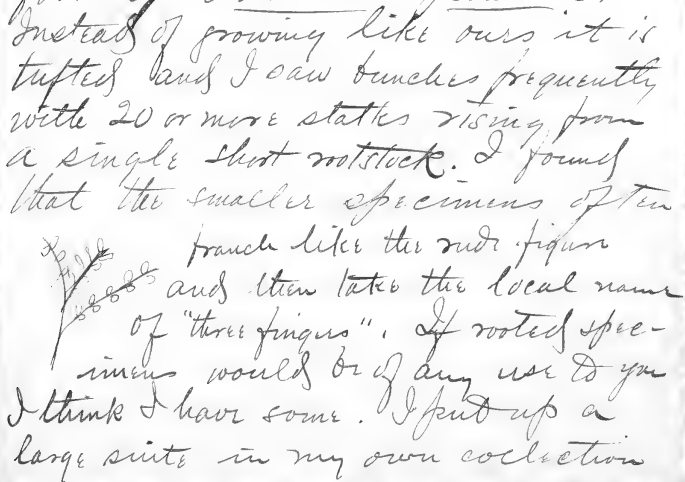 Instead of growing like ours it is
tufted and I saw bunches frequently
with 20 or more stalks rising from
a single short rootstock. I found
that the smaller specimens often
branch like the rude figure
and then take the local name
of "three fingers". If rooted spec-
imens would be of any use to you
I think I have some. I put up a
large suite in my own collection